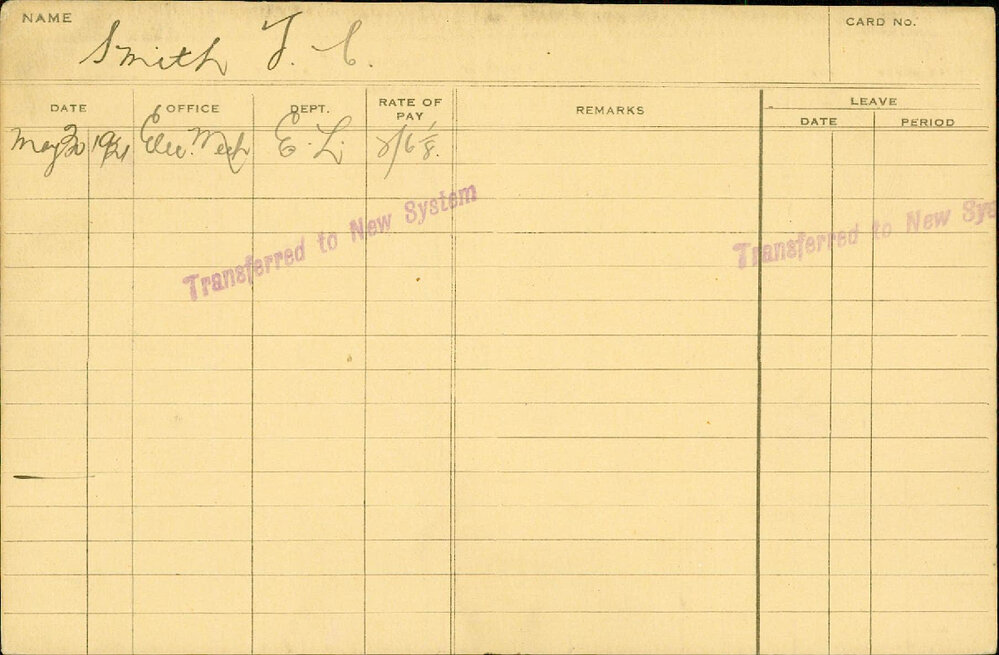 NAME
CARD No.
Smith F. C.
DATE OFFICE DEPT. RATE OF PAY REMARKS LEAVE
DATE PERIOD
May 20 1921 Elec. Mech E. L.
Transferred to New System
Transferred to New Sys